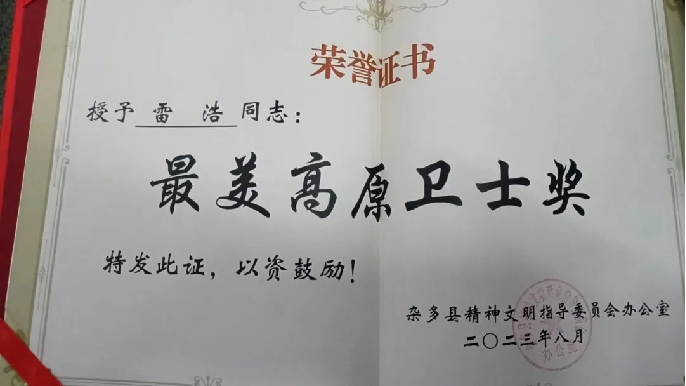 荣誉证书
授予 雷浩 同志：
最美高原卫士奖
特发此证，以资鼓励！
杂多县精神文明指导委员会办公室
二〇二三年八月
办公室